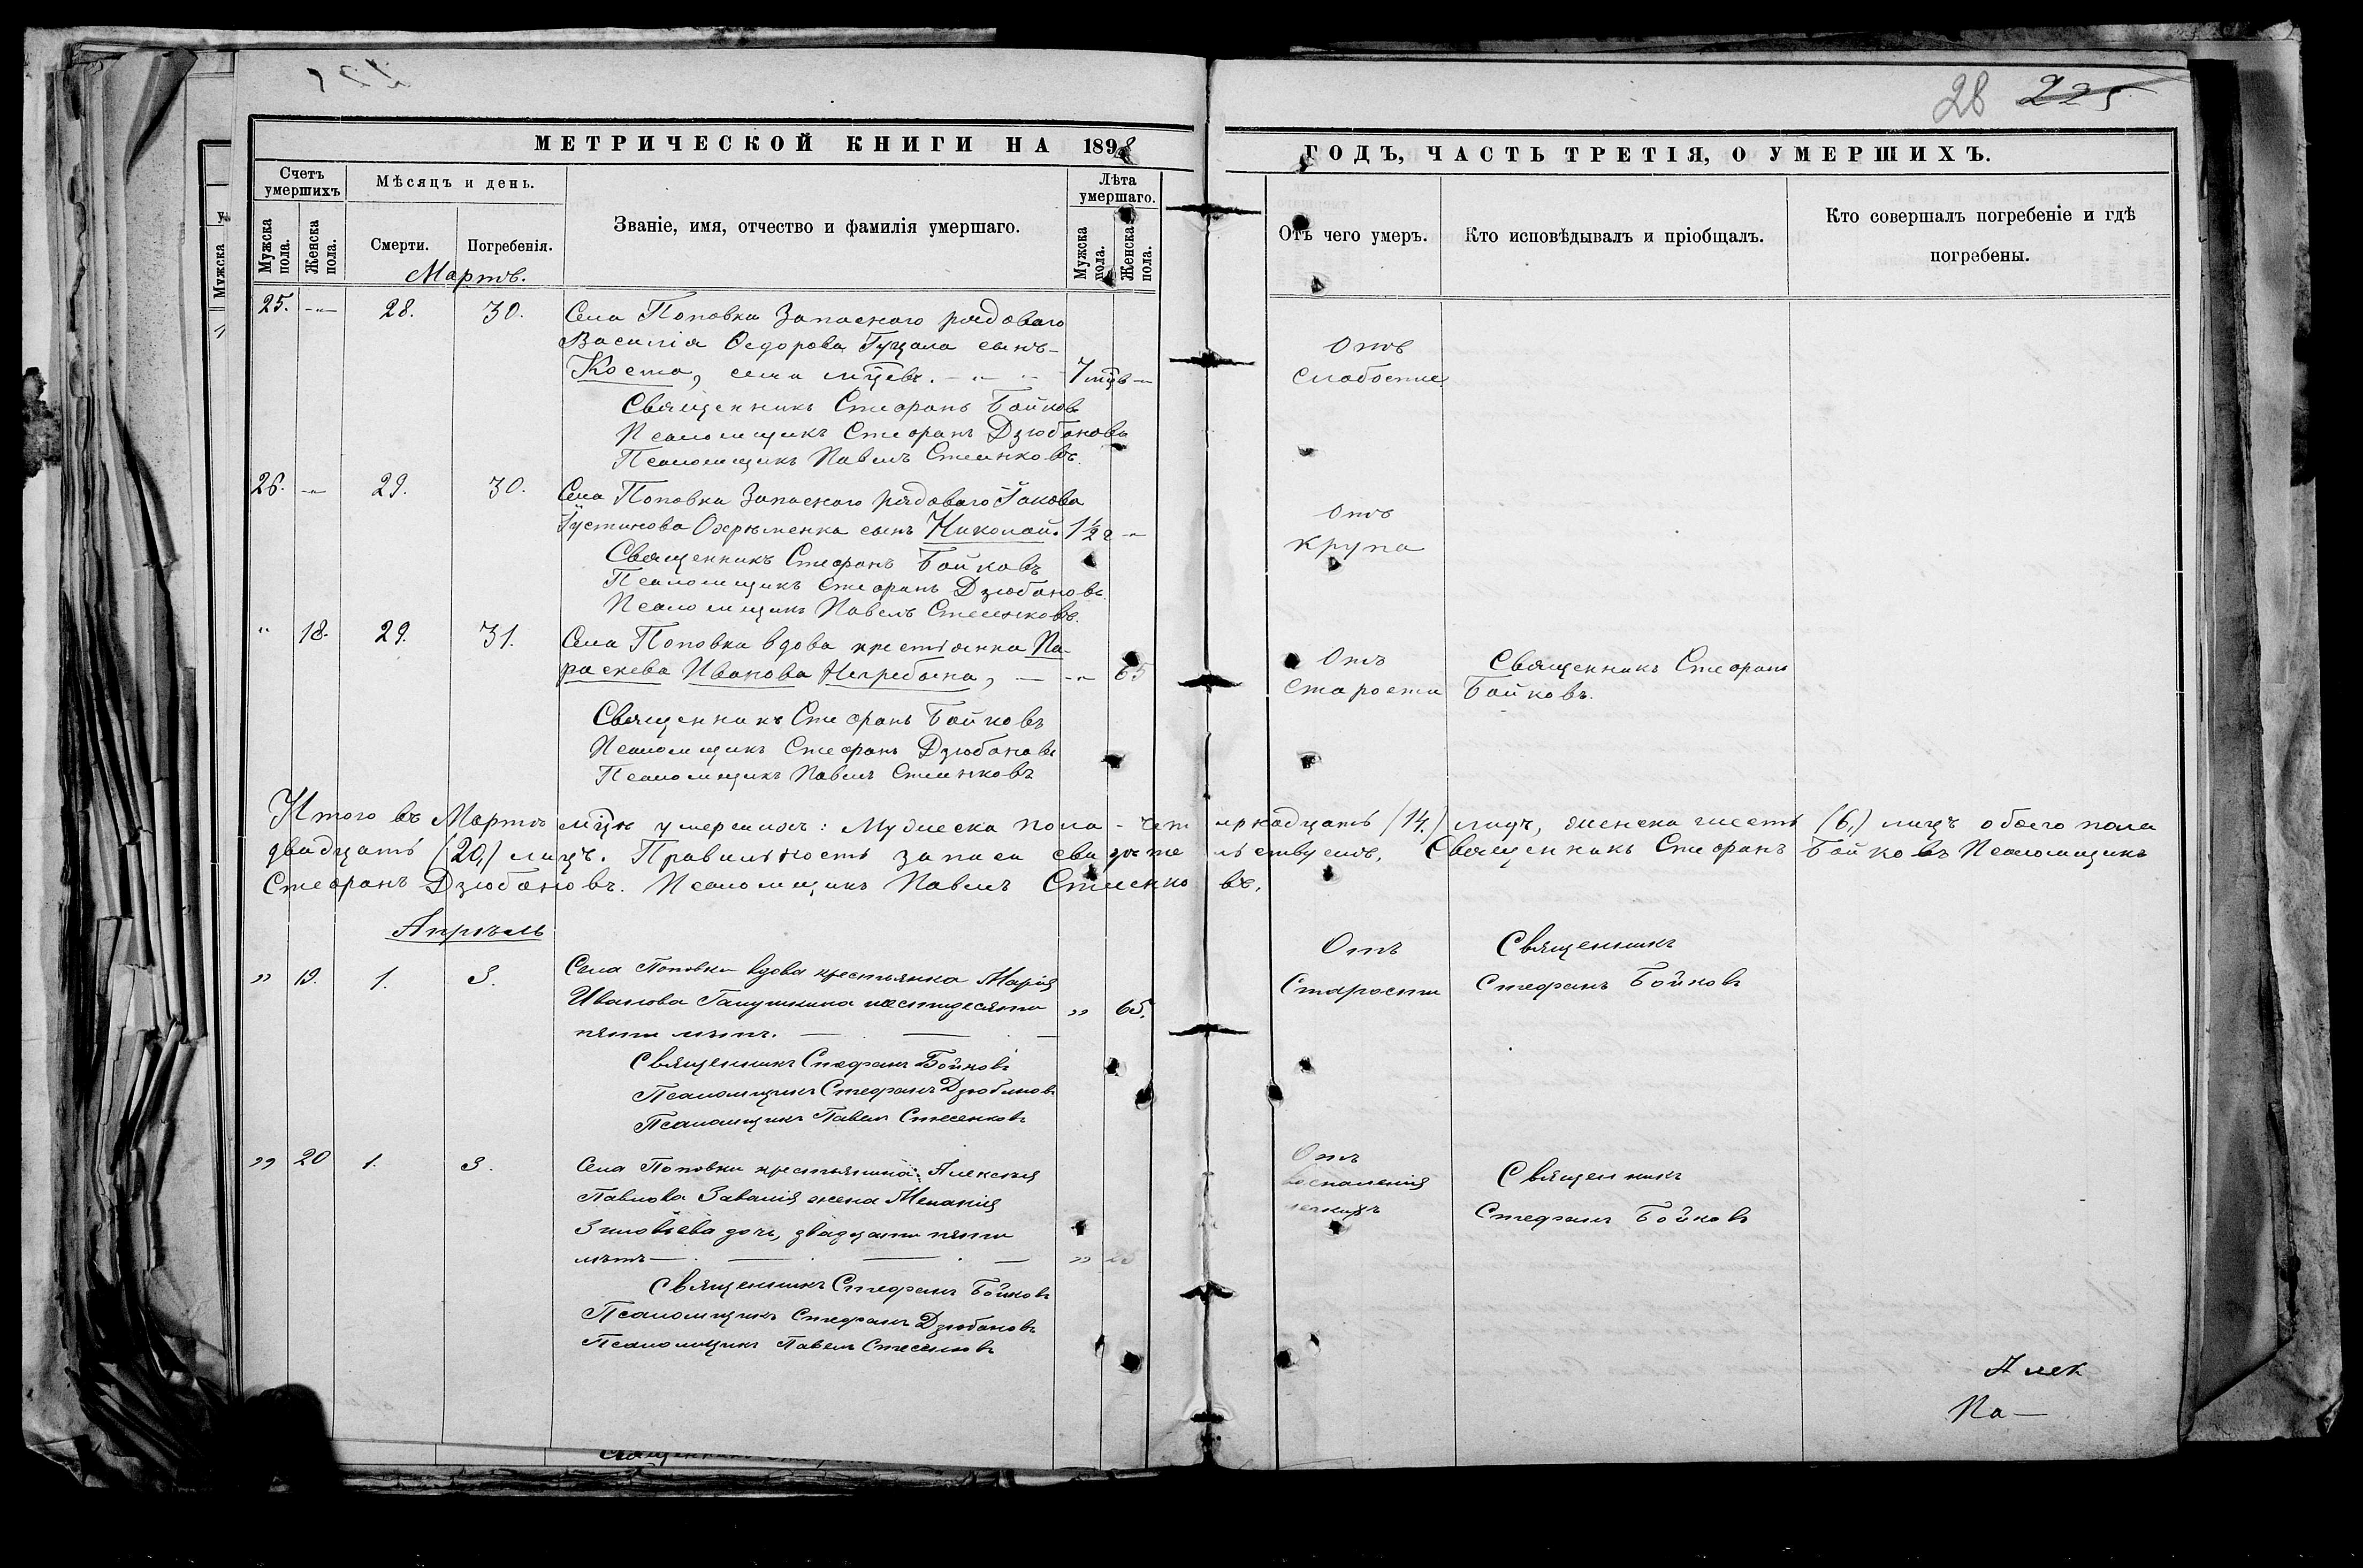 28 225
МЕТРИЧЕСКОЙ КНИГИ НА 1898
ГОДЪ, ЧАСТЬ ТРЕТІЯ, О УМЕРШИХЪ.
Счетъ умершихъ
Мѣсяцъ и день.
Званіе, имя, отчество и фамилія умершаго.
Лѣта умершаго.
Мужска пола.
Женска пола.
Смерти.
Погребенія.
Мужска пола.
Женска пола.
Отъ чего умеръ.
Кто исповѣдывалъ и пріобщалъ.
Кто совершалъ погребеніе и гдѣ
погребены.
Мартъ.
25. 28. 30. Села Поповки Запаснаго рядоваго
Василія Ѳедорова Гуцала сынъ
Коста, семи мцевъ. 7 мцв
Отъ
слабости
Священникъ Стефанъ Бойковъ
Псаломщикъ Стефанъ Дзюбановъ
Псаломщикъ Павелъ Стеснковъ
26. 29. 30. Села Поповки Запаснаго рядоваго Іакова
Іустинова Охрѣменка сынъ Николай. 1½ г
Отъ
крупа
Священникъ Стефанъ Бойковъ
Псаломщикъ Стефанъ Дзюбановъ
Псаломщикъ Павелъ Стесенковъ.
" 18. 29. 31. Села Поповки вдова крестьянка Па-
раскева Иванова Негребоска, 65
Отъ
Старости
Священникъ Стефанъ
Бойковъ.
Священникъ Стефанъ Бойковъ
Псаломщикъ Стефанъ Дзюбановъ
Псаломщикъ Павелъ Стесенковъ
Итого въ Мартѣ мцѣ умершихъ: Мужеска пола - четырнадцать (14.) лицъ, женска шесть (6.) лицъ обоего пола
двадцать (20,) лицъ. Правильность записи свидѣтельствуемъ. Священникъ Стефанъ Бойковъ Псаломщикъ
Стефанъ Дзюбановъ. Псаломщикъ Павелъ Стесенковъ.
Апрѣль
" 19. 1. 3. Села Поповки вдова крестьянка Марія
Иванова Галушкина шестидесяти
пяти лѣтъ. " 65.
Отъ
Старости
Священникъ
Стефанъ Бойковъ
Священникъ Стефанъ Бойковъ
Псаломщикъ Стефанъ Дзюбановъ
Псаломщикъ Павелъ Стесенковъ
" 20 1. 3. Села Поповки крестьянина Алексѣя
Павлова Завалія жена Меланія
Зиновіева дочь, двадцати пяти
лѣтъ " 25
Отъ
воспаленія
легкихъ
Священникъ
Стефанъ Бойковъ
Священникъ Стефанъ Бойковъ
Псаломщикъ Стефанъ Дзюбановъ
Псаломщикъ Павелъ Стесенковъ
Алек
Па—